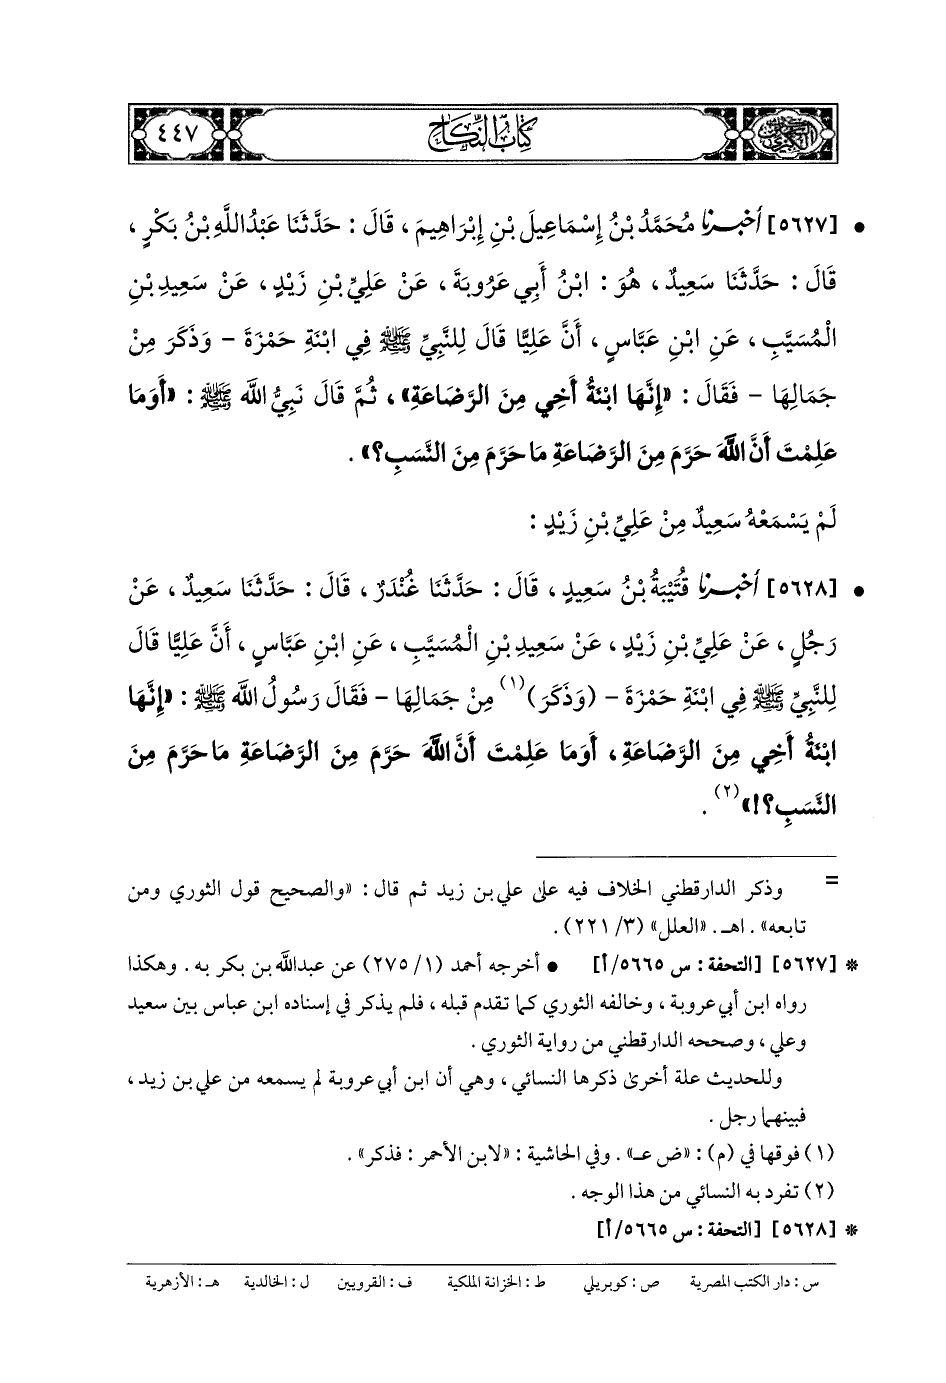 كتاب النكاح
٤٤٧
• [٥٦٢٧] أخبرنا مُحَمَّدُ بْنُ إِسْمَاعِيلَ بْنِ إِبْرَاهِيمَ ، قَالَ : حَدَّثَنَا عَبْدُاللَّهِ بْنُ بَكْرٍ ،
قَالَ : حَدَّثَنَا سَعِيدٌ ، هُوَ : ابْنُ أَبِي عَرُوبَةَ ، عَنْ عَلِيِّ بْنِ زَيْدٍ ، عَنْ سَعِيدِ بْنِ
الْمُسَيَّبِ ، عَنِ ابْنِ عَبَّاسٍ ، أَنَّ عَلِيًّا قَالَ لِلنَّبِيِّ ﷺ فِي ابْنَةِ حَمْزَةَ - وَذَكَرَ مِنْ
جَمَالِهَا - فَقَالَ : «إِنَّهَا ابْنَةُ أَخِي مِنَ الرَّضَاعَةِ» ، ثُمَّ قَالَ نَبِيُّ اللَّه ﷺ : «أَوَمَا
عَلِمْتَ أَنَّ اللَّهَ حَرَّمَ مِنَ الرَّضَاعَةِ مَا حَرَّمَ مِنَ النَّسَبِ؟» .
لَمْ يَسْمَعْهُ سَعِيدٌ مِنْ عَلِيِّ بْنِ زَيْدٍ :
• [٥٦٢٨] أخبرنا قُتَيْبَةُ بْنُ سَعِيدٍ ، قَالَ : حَدَّثَنَا غُنْدَرٌ ، قَالَ : حَدَّثَنَا سَعِيدٌ ، عَنْ
رَجُلٍ ، عَنْ عَلِيِّ بْنِ زَيْدٍ ، عَنْ سَعِيدِ بْنِ الْمُسَيَّبِ ، عَنِ ابْنِ عَبَّاسٍ ، أَنَّ عَلِيًّا قَالَ
لِلنَّبِيِّ ﷺ فِي ابْنَةِ حَمْزَةَ - (وَذَكَرَ)(١) مِنْ جَمَالِهَا - فَقَالَ رَسُولُ اللَّه ﷺ : «إِنَّهَا
ابْنَةُ أَخِي مِنَ الرَّضَاعَةِ ، أَوَمَا عَلِمْتَ أَنَّ اللَّهَ حَرَّمَ مِنَ الرَّضَاعَةِ مَا حَرَّمَ مِنَ
النَّسَبِ؟!»(٢) .
= وذكر الدارقطني الخلاف فيه على علي بن زيد ثم قال : «والصحيح قول الثوري ومن
تابعه» . اهـ . «العلل» (٣/ ٢٢١) .
* [٥٦٢٧] [التحفة : س ٥٦٦٥/أ] • أخرجه أحمد (١/ ٢٧٥) عن عبدالله بن بكر به . وهكذا
رواه ابن أبي عروبة ، وخالفه الثوري كما تقدم قبله ، فلم يذكر في إسناده ابن عباس بين سعيد
وعلي ، وصححه الدارقطني من رواية الثوري .
وللحديث علة أخرى ذكرها النسائي ، وهي أن ابن أبي عروبة لم يسمعه من علي بن زيد ،
فبينهما رجل .
(١) فوقها في (م) : «ض عـ» . وفي الحاشية : «لابن الأحمر : فذكر» .
(٢) تفرد به النسائي من هذا الوجه .
* [٥٦٢٨] [التحفة : س ٥٦٦٥/أ]
س : دار الكتب المصرية ص : كوبريلي ط : الخزانة الملكية ف : القرويين ل : الخالدية هـ : الأزهرية